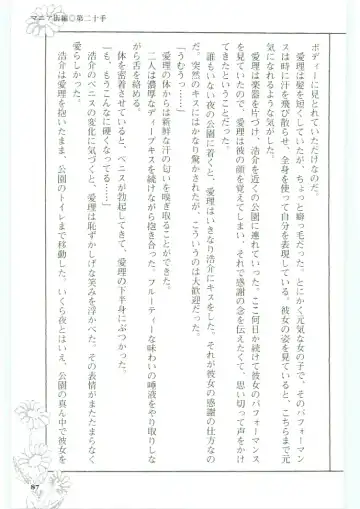 マニア街編○第二十手
ボディーに見とれていただけなのだ。
愛理は髪を短くしていたが、ちょっと癖っ毛だった。とにかく元気な女の子で、そのパフォーマン
スは時に汗を飛び散らせ、全身を使って自分を表現している。彼女の姿を見ていると、こちらまで元
気になれるような気がした。
愛理は楽器を片づけ、浩介を近くの公園に連れていった。ここ何日か続けて彼女のパフォーマンス
を見ていたので、愛理は彼の顔を覚えてしまい、それで感謝の念を伝えたくて、思い切って声をかけ
たということだった。
誰もいない夜の公園に着くと、愛理はいきなり浩介にキスをした。それが彼女の感謝の仕方なの
だ。突然のキスにはかなり驚かされたが、こういうのは大歓迎だった。
「うむうっ……」
愛理の体からは新鮮な汗の匂いを嗅ぎ取ることができた。
二人は濃厚なディープキスを続けながら抱き合った。フルーティーな味わいの唾液をやり取りしな
がら舌を絡める。
体を密着させていると、ペニスが勃起してきて、愛理の下半身にぶつかった。
「も、もうこんなに硬くなってる……」
浩介のペニスの変化に気づくと、愛理は恥ずかしげな笑みを浮かべた。その表情がまたたまらなく
愛らしかった。
浩介は愛理を抱いたまま、公園のトイレまで移動した。いくら夜とはいえ、公園の真ん中で彼女を
87